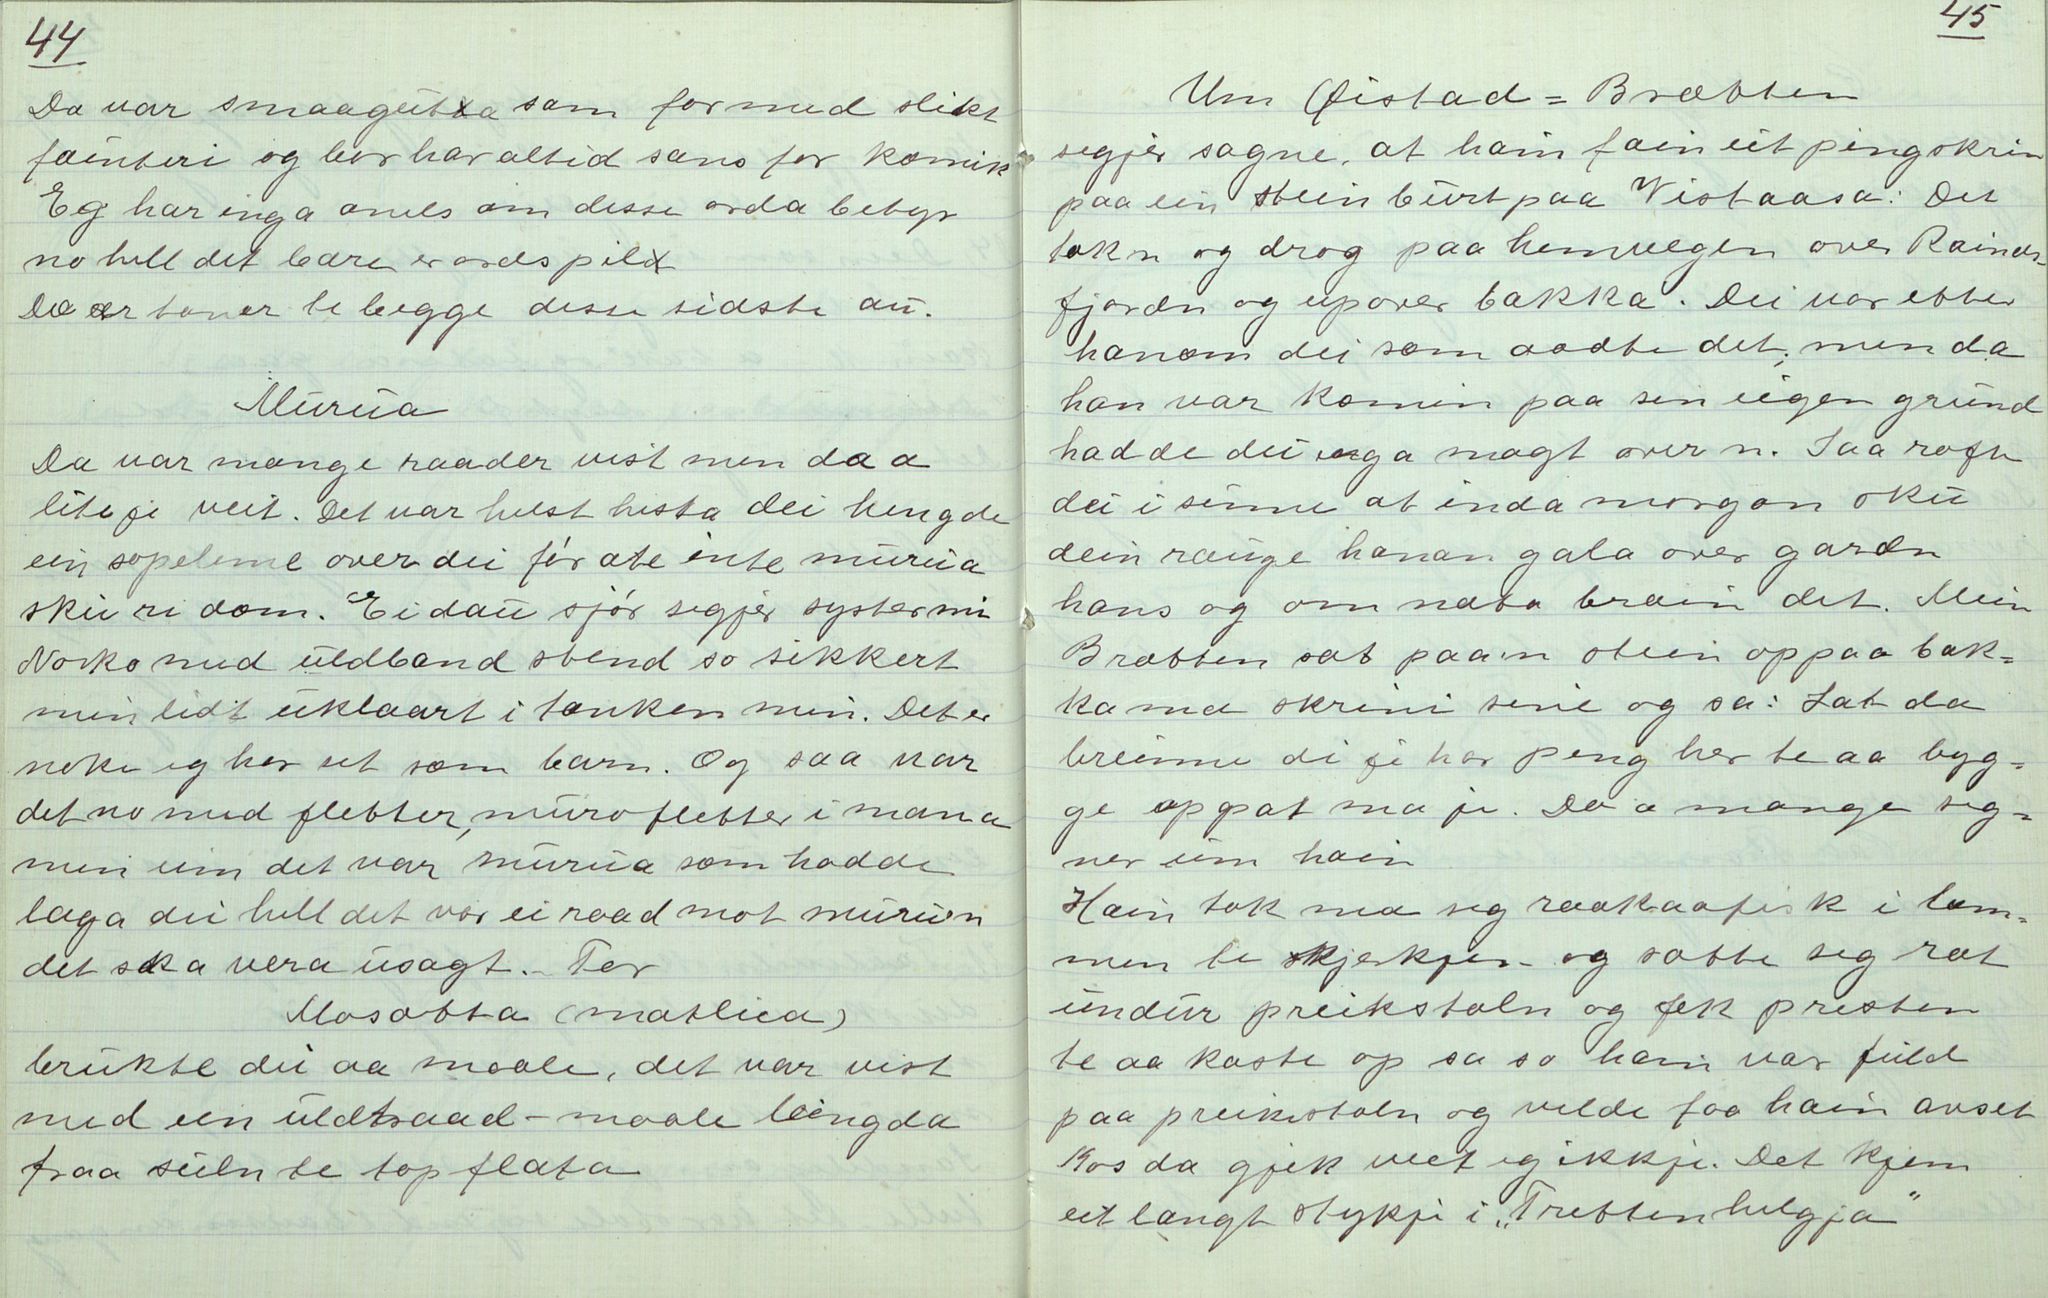 44
Da var smaaguta som for med slikt
fainteri og ber har altid sans for komik
Eg har inga anels om desse orda betyr
no hell det bare er ordspil
Da ær toner te begge desse sidste au.
Murua
Da var mange raader vist men da a
lite je veit. Det var helst hesta dei hengde
ein sopelime over dei fór at e inte murua
sku ri dom. Ei dau sjór segjer syster mi
Noko med uldband stend so sikkert
min lidt uklaart i tanken min. Det er
noke eg her set som barn. Og saa var
det no med flebter, muroflebter i mana
men um det var murua som hadde
laga dei hell det var ei raad mot muruen
det ska vera usagt. – Ter
Mosotta (matlica)
brukte dei aa maale, det var vist
med ein uldtraad – maale lengda
fraa suln te topflata
45
Um Øistad = Bræbten
segjer sagne, at hain fain eit pengskrin
paa ein stein burt paa Vistaasa: Det
tok n og drog paa hemvegen over Rainds-
fjordn og upover bakka. Dei var etter
hanom dei som aadte det, men da
han var komin paa sin eigen grund
hadde dei inga magt over n. Saa rofte
dei i sinne at inda morgon sku
dein rauge hanan gala over gardn
hans og om nata brain det. Mein
Bræbten sat paa'n stein oppaa bak=
ka ma skrini sine og sa: Lat da
breinne di je har peng her te aa byg=
ge oppat ma je. Da a mange seg=
ner um hain
Hain tok ma seg raakaafisk i lom=
men te kjerkjen og sabte seg ræt
undur preikstoln og fek presten
te aa kaste op sa so hain var fuld
paa preikestoln og velde faa hain avset
Kos da gjek veet eg ikkje. Det kjem
eit langt stykje i „Trebtenhelgja"